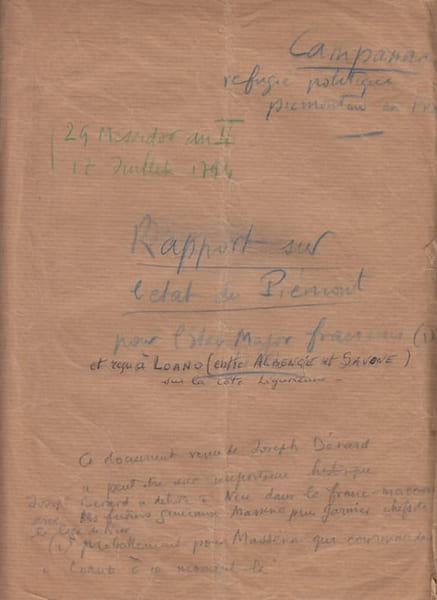 Campanan
refugié politique
piemontais en
29 Messidor an II
17 Juillet 1794
Rapport sur
l'état du Piémont
pour l'Etat Major français (1)
et reçu à LOANO (entre ALBENGA et SAVONE)
sur la côte Ligurienne -
Ce document venu de Joseph Dérard
a peut être une importance historique
Joseph Dérard a débuté à Nice dans la franc-maçon
avec les généraux Masséna puis Garnier
(1) probablement pour Massena qui commandait
à Loano à ce moment là